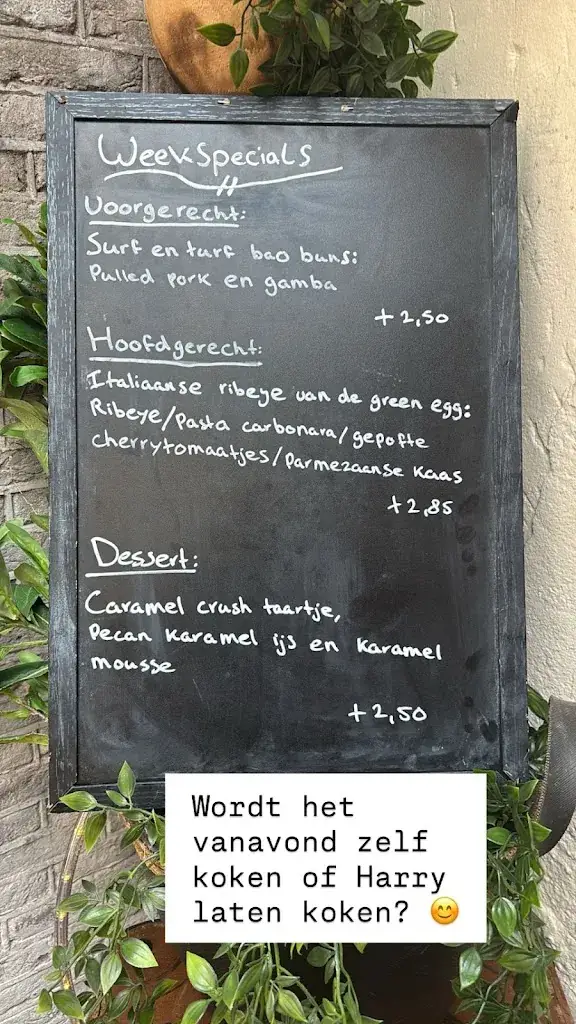 Weekspecials
Voorgerecht:
Surf en turf bao buns:
Pulled pork en gamba
+2,50
Hoofdgerecht:
Italiaanse ribeye van de green egg:
Ribeye/Pasta carbonara/gepofte
cherrytomaatjes/Parmezaanse kaas
+2,85
Dessert:
Caramel crush taartje,
Pecan karamel ijs en karamel
mousse
+2,50
Wordt het
vanavond zelf
koken of Harry
laten koken? 😊